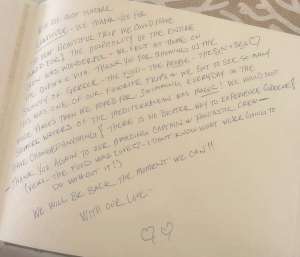 WE'RE NOT
GRATITUDE - WE THANK YOU FOR
MOST BEAUTIFUL TRIP WE COULD HAVE
THE HOSPITALITY OF THE ENTIRE
WAS WONDERFUL - WE FELT AT HOME ON
VITA. THANK YOU FOR SHOWING US THE
BEAUTY OF GREECE - THE FOOD - THE PEOPLE - THE SUN + SEA ♡
ONE OF OUR FAVORITE TRIPS & WE GOT TO SEE SO MANY
MORE PLACES THAN WE HOPED FOR. SWIMMING EVERYDAY IN THE
WATERS OF THE MEDITERRANEAN WAS MAGIC! WE WOULD NOT
HAVE CHANGED ANYTHING! THERE IS NO BETTER WAY TO EXPERIENCE GREECE!
THANK YOU AGAIN TO OUR AMAZING CAPTAIN & FANTASTIC CREW -
(THE FOOD WAS I DON'T KNOW WHAT WE'RE GOING TO
DO WITHOUT IT!)
WE WILL BE BACK THE MOMENT WE CAN!!
WITH OUR LOVE -
♡ ♡